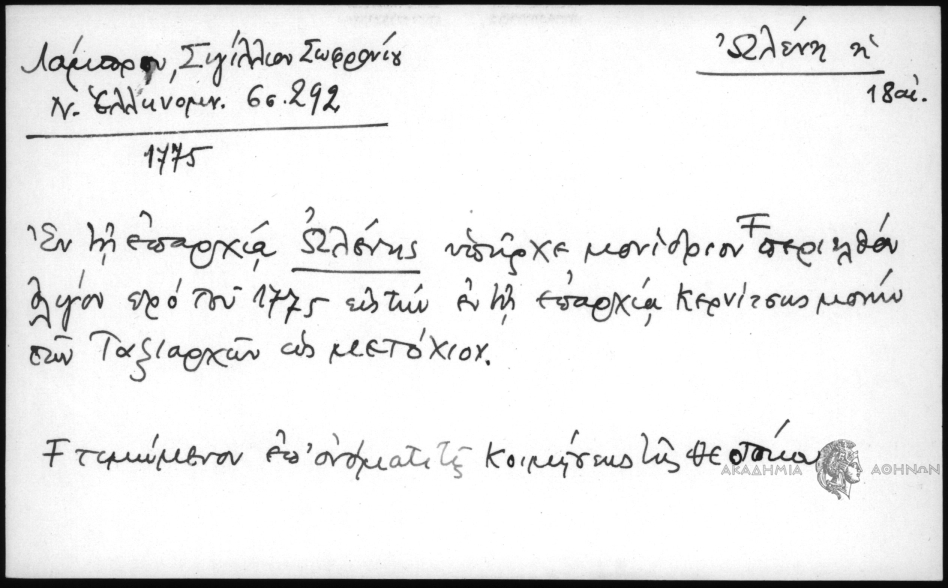 Λάμπρου, Σιγίλλιον Σωφρονίου
Ν. Ἑλληνομν. 6 σ. 292
1775
Ὠλένη ἡ
18 αἰ.
Ἐν τῇ ἐπαρχίᾳ Ὠλένης ὑπῆρχε μονύδριον Ŧ περιελθὸν
ὀλίγον πρὸ τοῦ 1775 εἰς τὴν ἐν τῇ ἐπαρχίᾳ Κερνίτσης μονὴν
τῶν Ταξιαρχῶν ὡς μετόχιον.
Ŧ τιμώμενον ἐπ' ὀνόματι τῆς Κοιμήσεως τῆς Θεοτόκου
ΑΚΑΔΗΜΙΑ ΑΘΗΝΩΝ